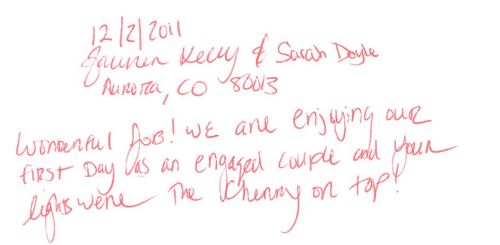 12/2/2011
Lauren Kelly & Sarah Doyle
Aurora, CO 80013
Wonderful Job! We are enjoying our
first Day as an engaged couple and your
lights were The Cherry on top!